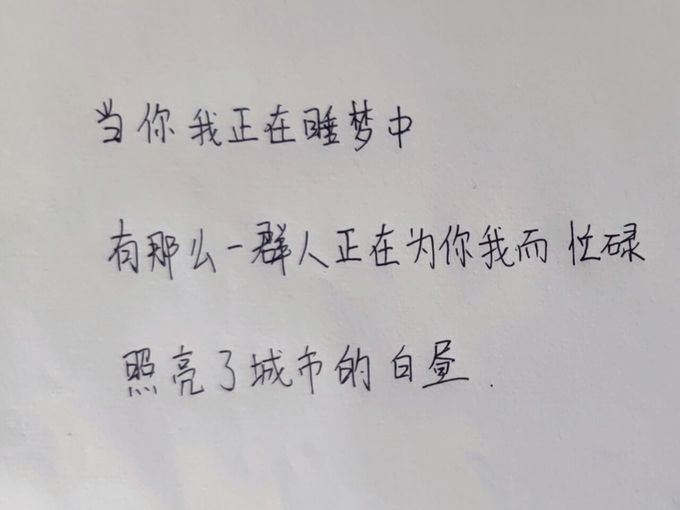 当你我正在睡梦中
有那么一群人正在为你我而忙碌
照亮了城市的白昼.